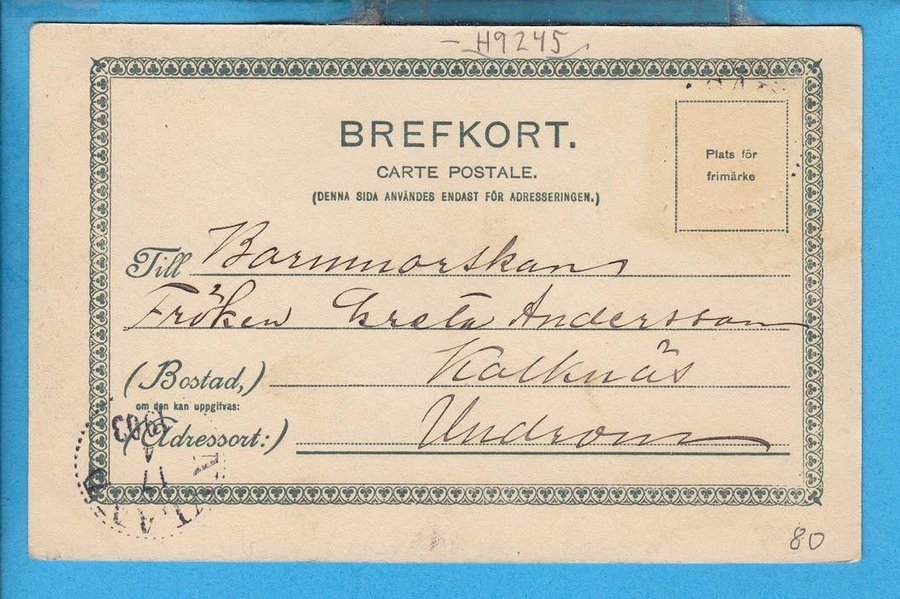 H9245
BREFKORT.
CARTE POSTALE.
(DENNA SIDA ANVÄNDES ENDAST FÖR ADRESSERINGEN.)
Plats för
frimärke
Till Barnmorskan
Fröken Greta Andersson
(Bostad,) Kalknäs
om den kan uppgifvas:
(Adressort:) Undrom
1903
4
17
80